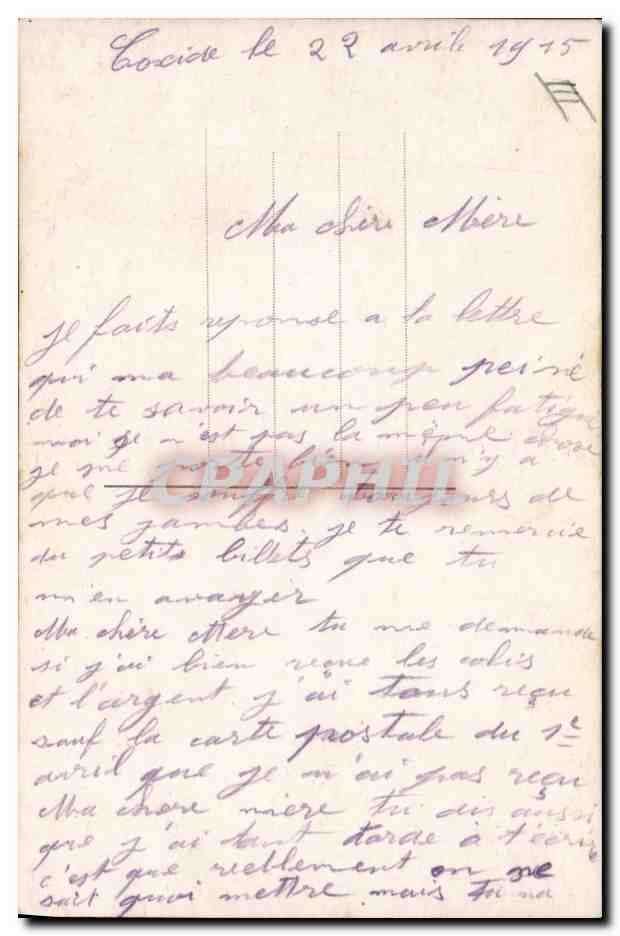 Coxide le 22 avril 1915
Ma chère Mère
je faits reponse a ta lettre
qui ma beaucoup peiné
de te savoir un peu fatigué
moi se n'est pas la même chose
je me porte bien il n'y a
que je souffre toujours de
mes jambes. je te remercie
du petits billets que tu
m'en avayer
Ma chère Mere tu me demande
si j'ai bien reçue les colis
et l'argent j'ai tous reçu
sauf la carte postale du 1er
avril que je n'ai pas reçu
Ma chère mère tu dis aussi
que j'ai tant tarde a t'écrire
c'est que reellement on ne
sait quoi mettre mais tu na
CPAPHIL